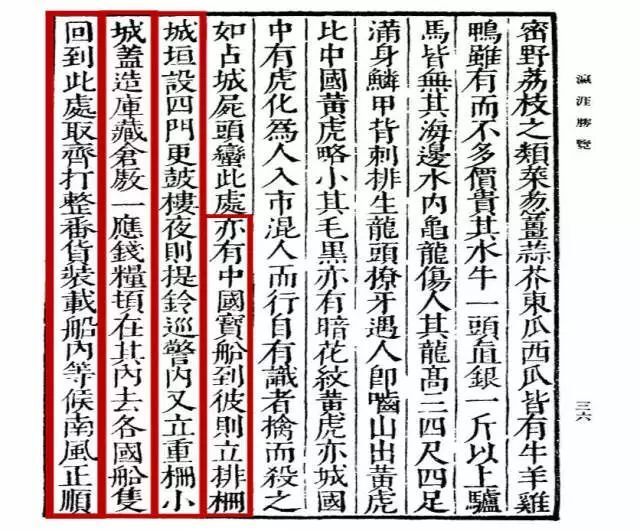 瀛涯勝覽
三六
密野荔枝之類菜葱薑蒜芥東瓜西瓜皆有牛羊雞
鴨雖有而不多價貴其水牛一頭直銀一斤以上驢
馬皆無其海邊水內龜龍傷人其龍高三四尺四足
滿身鱗甲背刺排生龍頭獠牙遇人卽嚙山出黃虎
比中國黃虎略小其毛黑亦有暗花紋黃虎亦城國
中有虎化爲人入市混人而行自有識者擒而殺之
如占城屍頭蠻此處亦有中國寶船到彼則立排柵
城垣設四門更鼓樓夜則提鈴巡警內又立重柵小
城蓋造庫藏倉廒一應錢糧頓在其內去各國船隻
回到此處取齊打整番貨裝載船內等候南風正順